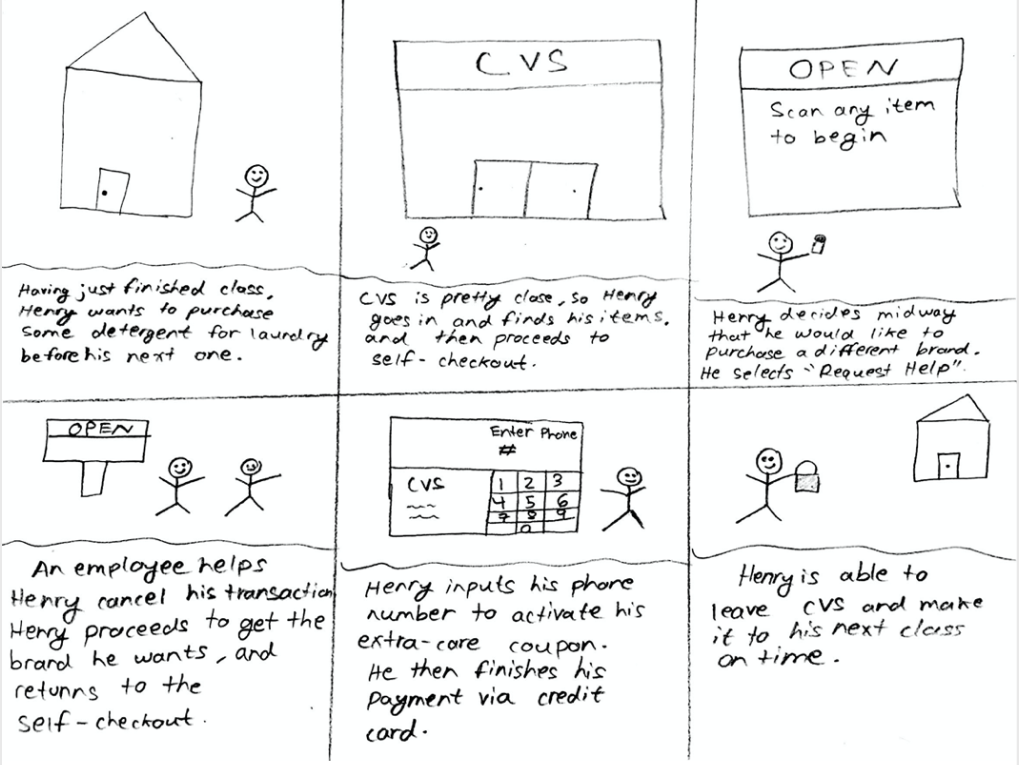 CVS
OPEN
Scan any item
to begin
Having just finished class,
Henry wants to purchase
some detergent for laundry
before his next one.
CVS is pretty close, so Henry
goes in and finds his items,
and then proceeds to
self-checkout.
Henry decides midway
that he would like to
purchase a different brand.
He selects "Request Help".
OPEN
An employee helps
Henry cancel his transaction
Henry proceeds to get the
brand he wants, and
returns to the
self-checkout.
Enter Phone
#
CVS
1 2 3
4 5 6
7 8 9
0
Henry inputs his phone
number to activate his
extra-care coupon.
He then finishes his
payment via credit
card.
Henry is able to
leave CVS and make
it to his next class
on time.